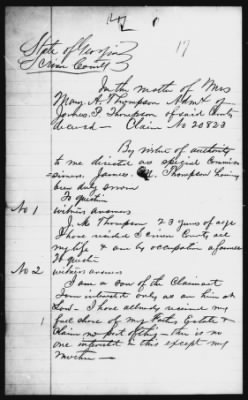 17
State of Georgia
Scriven County
In the matter of Mrs
Mary A. Thompson Admx of
James P. Thompson of said County
deceased — Claim No 20833
By virtue of authority
to me directed as special Commis-
sioner, James M. Thompson having
been duly sworn
To question
No 1 witness answers
J. M. Thompson 23 years of age
I have resided in Scriven County all
my life & am by occupation a farmer
To questn
No 2 witness answers
I am a son of the Claimant
I am interested only as an heir at
Law - I have already received my
full share of my Fathers Estate &
Claim no part of this - there is no
one interested in this except my
Mother —